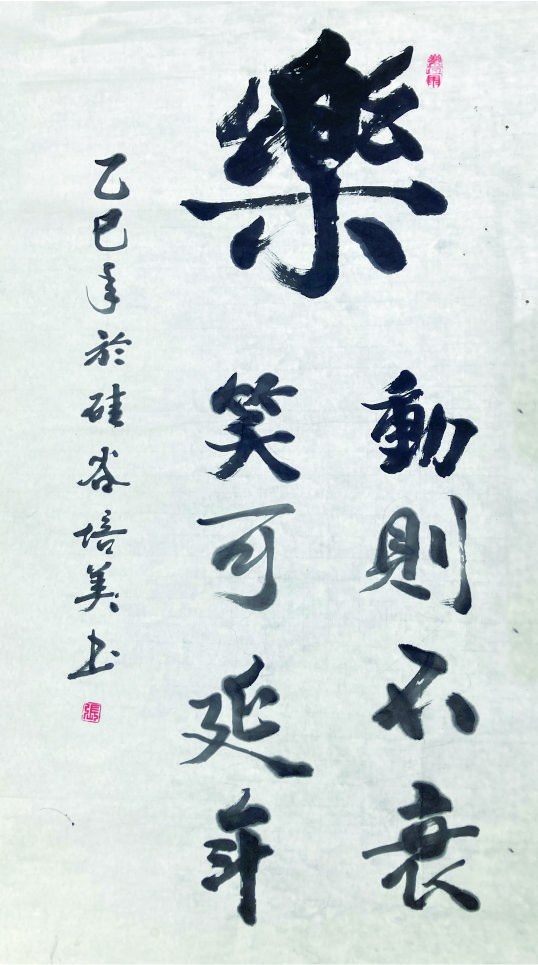 樂
動則不衰
笑可延年
乙巳年於硅谷培美书
張